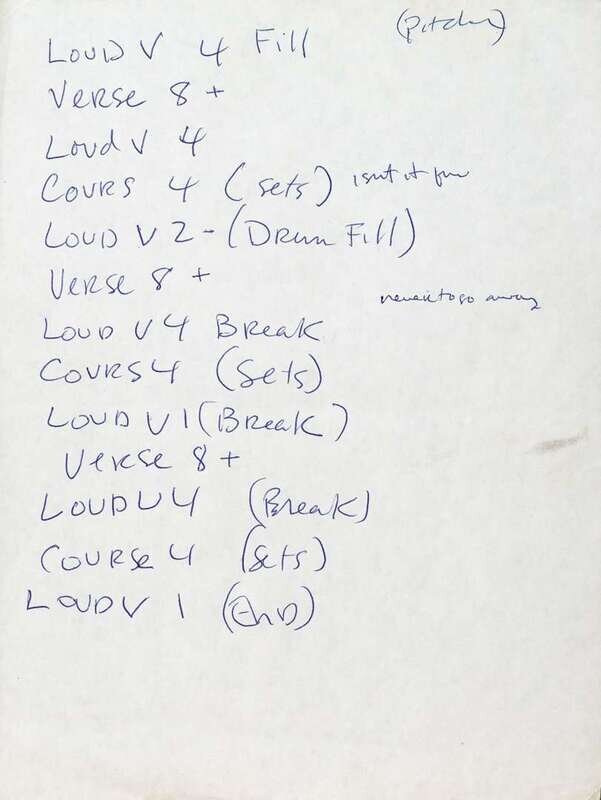 (Pitcher)
Loud V 4 Fill
Verse 8 +
Loud V 4
Cours 4 (Sets) isnt it fun
Loud V 2 - (Drum Fill)
Verse 8 +
to go away
Loud V 4 Break
Cours 4 (Sets)
Loud V 1 (Break)
Verse 8 +
Loud V 4 (Break)
Course 4 (Sets)
Loud V 1 (End)